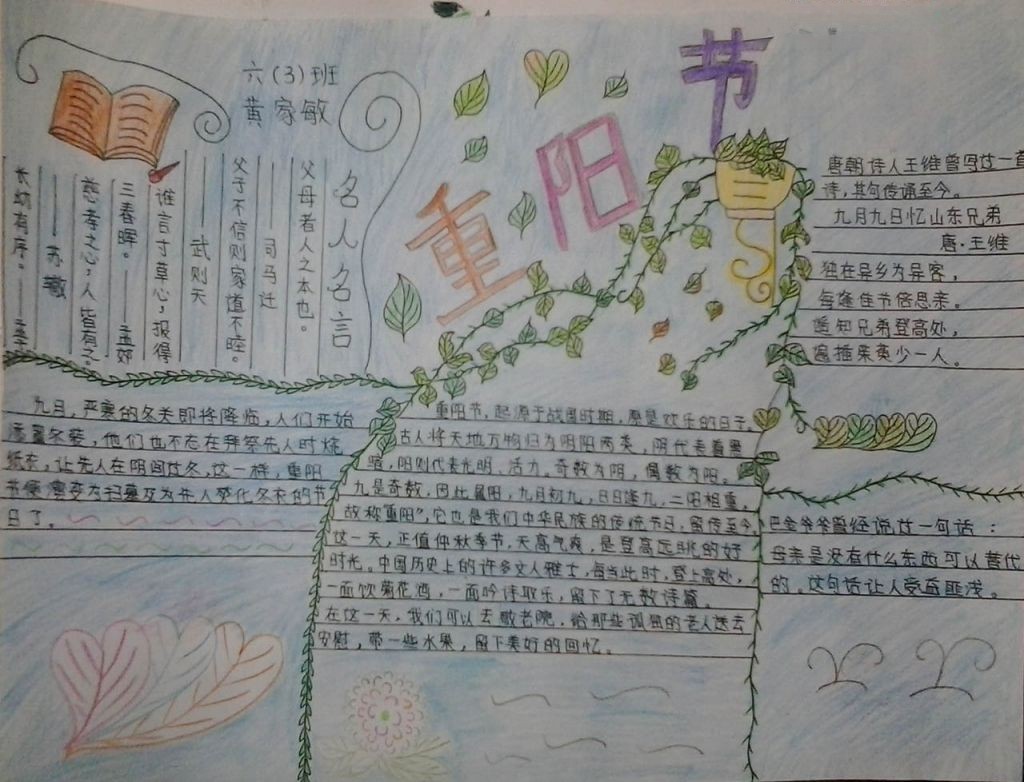 六(3)班
黄家敏
重阳节
名人名言
父母者人之本也。
——司马迁
父子不信则家道不睦。
——武则天
谁言寸草心,报得
三春晖。——孟郊
慈孝之心,人皆有之
——苏辙
长幼有序。——孟
唐朝诗人王维曾写过一首
诗,其句传诵至今。
九月九日忆山东兄弟
唐·王维
独在异乡为异客,
每逢佳节倍思亲。
遥知兄弟登高处,
遍插朱萸少一人。
九月,严寒的冬天即将降临,人们开始
添置冬装,他们也不忘在拜祭先人时烧
纸衣,让先人在阴间过冬,这一样,重阳
节便演变为扫墓及为先人焚化冬衣的节
日了。
重阳节,起源于战国时期,原是欢乐的日子。
古人将天地万物归为阴阳两类,阴代表着黑
暗,阳则代表光明、活力。奇数为阳,偶数为阳。
九是奇数,因此属阳,九月初九,日月逢九,二阳相重,
故称重阳”,它也是我们中华民族的传统节日,留传至今
这一天,正值仲秋季节,天高气爽,是登高远眺的好
时光。中国历史上的许多文人雅士,每当此时,登上高处,
一面饮菊花酒,一面吟诗取乐,留下了无数诗篇。
在这一天,我们可以去敬老院,给那些孤独的老人送去
安慰,带一些水果,留下美好的回忆。
巴金爷爷曾经说过一句话:
母亲是没有什么东西可以替代
的。这句话让人受益匪浅。